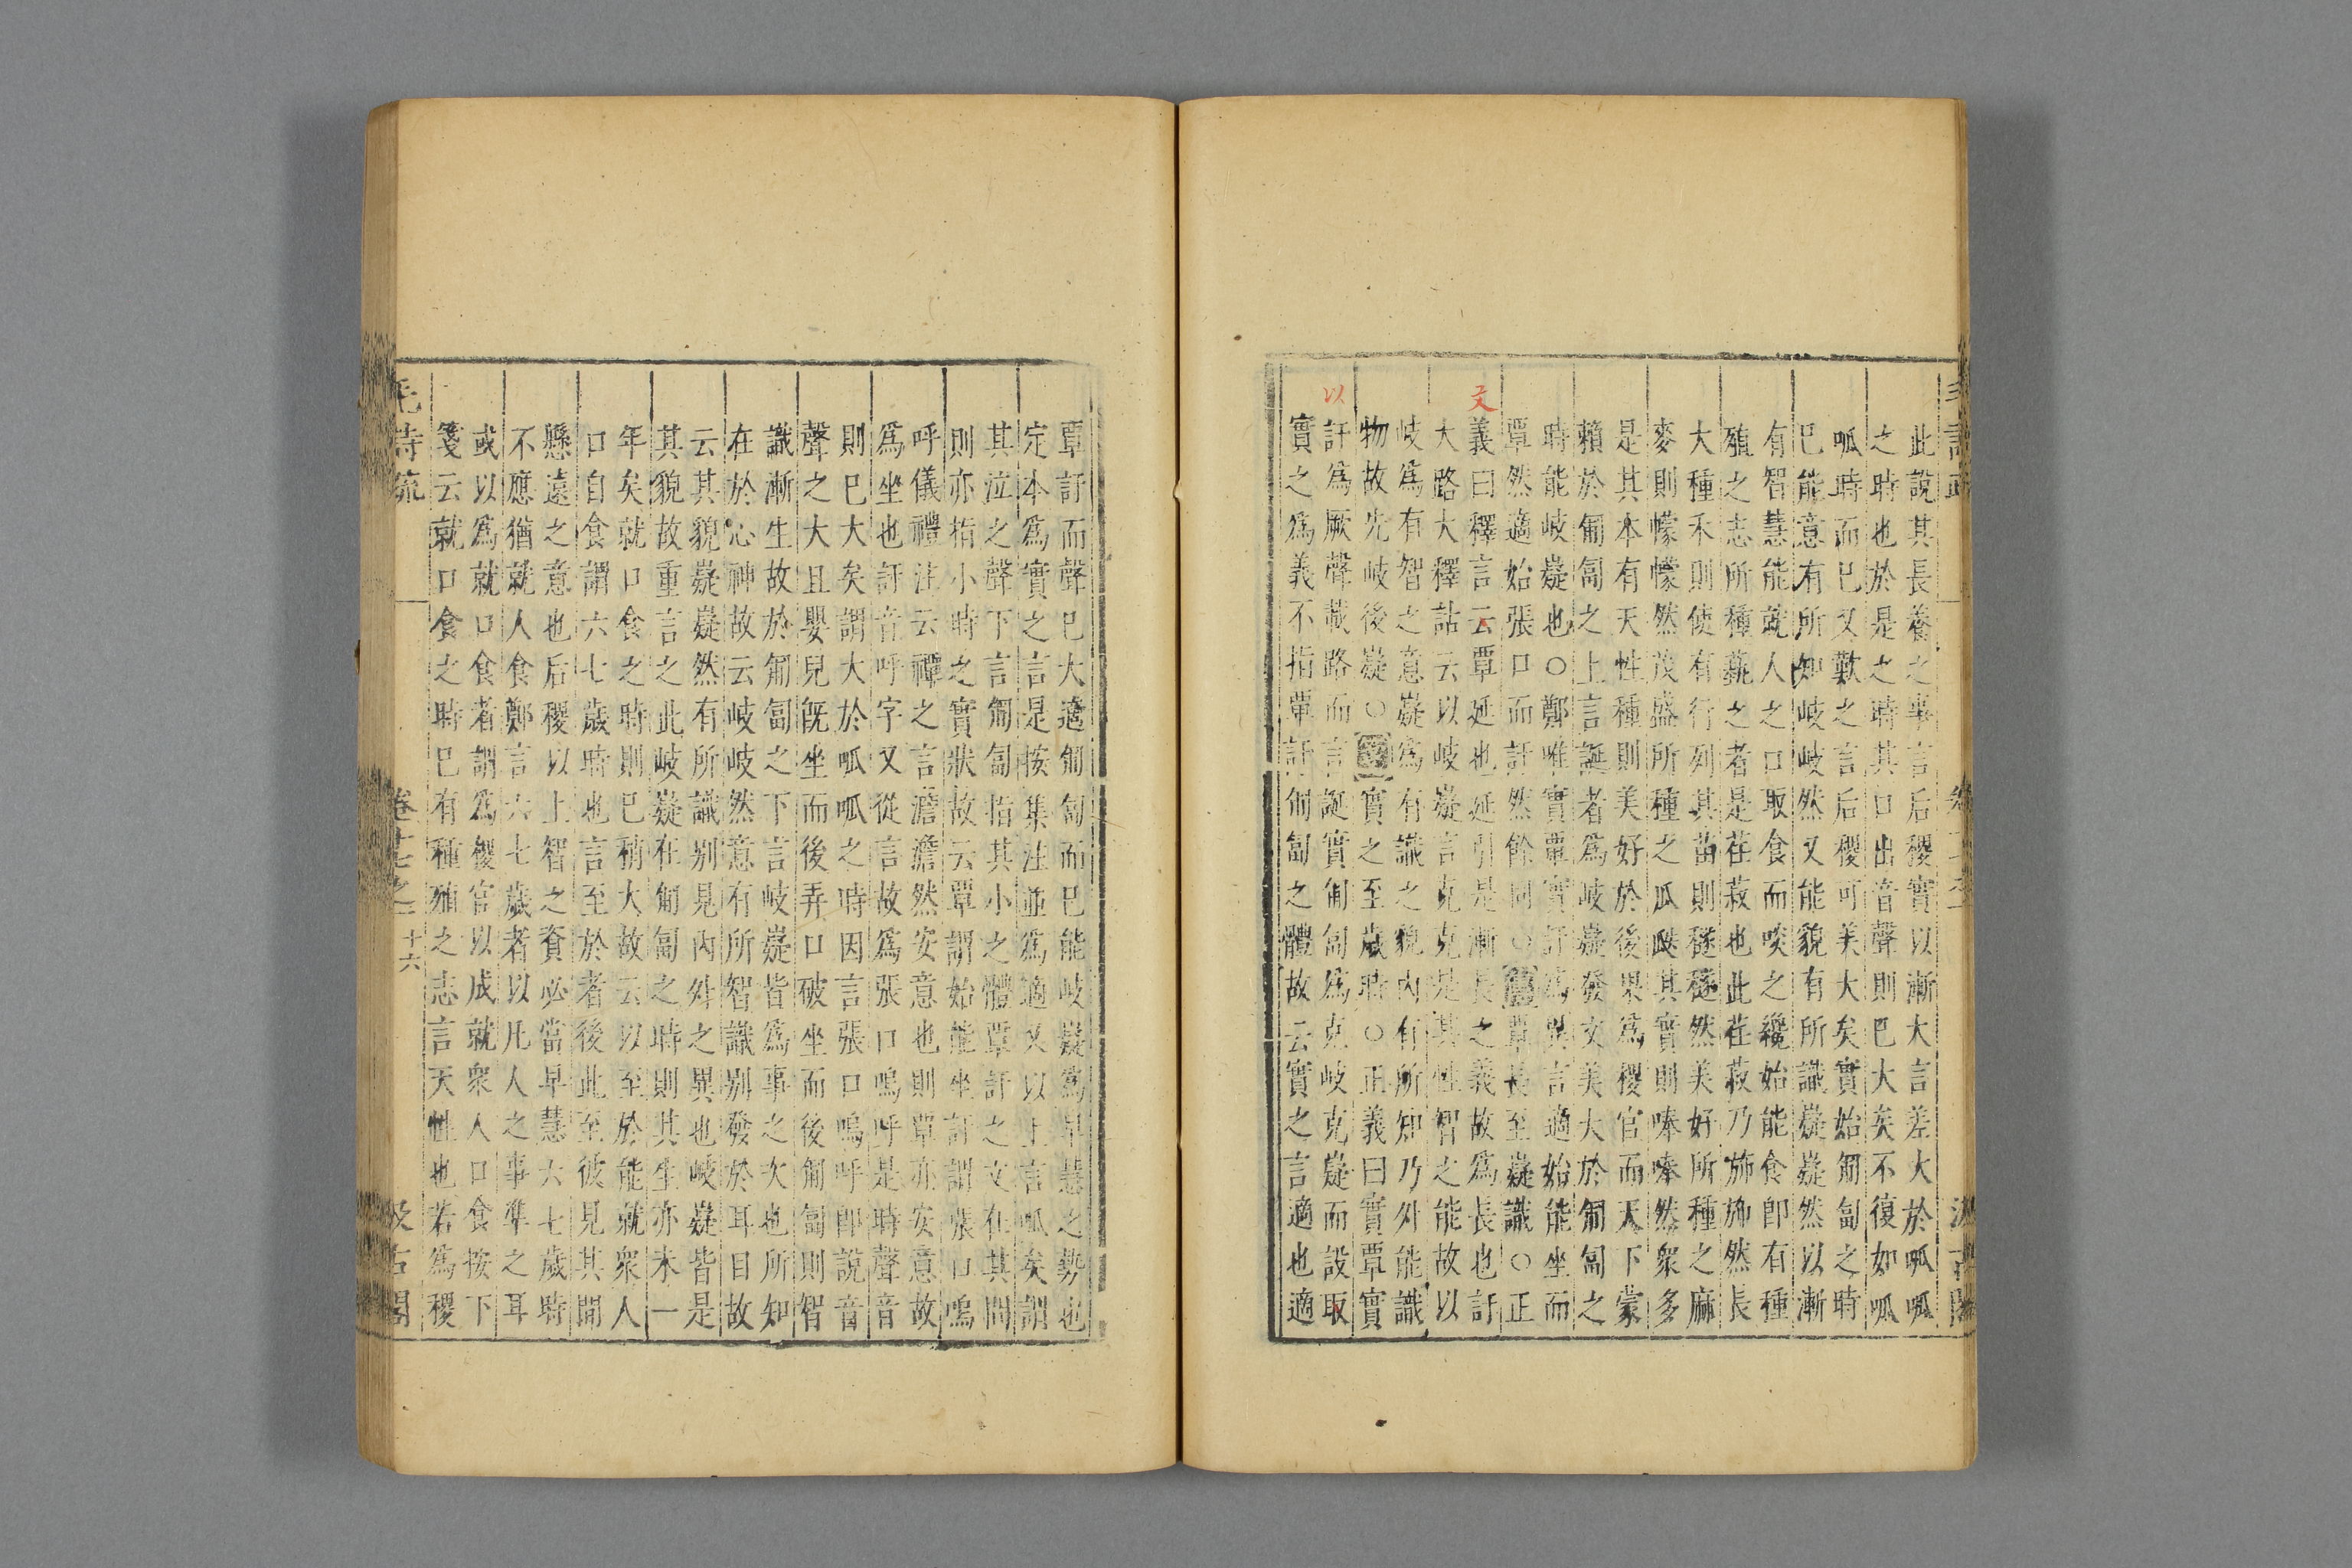 此說其長養之事言后稷實以漸大言差大於呱呱
之時也於是之時其口出音聲則巳大矣不復如呱
呱時而巳又歎之言后稷可美大矣實始匍匐之時
巳能意有所知岐岐然又能貌有所識嶷嶷然以漸
有智慧能就人之口取食而啖之纔始能食卽有種
殖之志所種蓺之者是荏菽也此荏菽乃斾斾然長
大種禾則使有行列其苗則穟穟然美好所種之麻
麥則幪幪然茂盛所種之瓜瓞其實則唪唪然衆多
是其本有天性種則美好於後果爲稷官而天下蒙
賴於匍匐之上言誕者爲岐嶷發文美大於匍匐之
時能岐嶷也○鄭唯實覃實訏爲異言適始能坐而
覃然適始張口而訏然餘同○傳覃長至嶷識○正
文
義曰釋言云覃延也延引是漸長之義故爲長也訏
大路大釋詁云以岐嶷言克克是其性智之能故以
岐爲有智之意嶷爲有識之貌內有所知乃外能識
物故先岐後嶷○箋實之至歲時○正義曰實覃實
以
訏爲厥聲載路而言誕實匍匐爲克岐克嶷而設取
實之爲義不指覃訏匍匐之體故云實之言適也適
覃訏而聲巳大適匍匐而巳能岐嶷爲早慧之勢也
定本爲實之言是按集注並爲適又以上言呱矣謂
其泣之聲下言匍匐指其小之體覃訏之文在其間
則亦指小時之實狀故云覃謂始能坐訏謂張口嗚
呼儀禮注云禫之言澹澹然安意也則覃亦安意故
爲坐也訏音呼字又從言故爲張口嗚呼是時聲音
則巳大矣謂大於呱呱之時因言張口嗚呼卽說音
聲之大且嬰兒旣坐而後弄口破坐而後匍匐則智
識漸生故於匍匐之下言岐嶷皆爲事之次也所知
在於心神故云岐岐然意有所智識別發於耳目故
云其貌嶷嶷然有所識別見內外之異也岐嶷皆是
其貌故重言之此岐嶷在匍匐之時則其生亦未一
年矣就口食之時則巳稍大故云以至於能就衆人
口自食謂六七歲時也言至於者後此至彼見其閒
懸遠之意也后稷以上智之資必當早慧六七歲時
不應猶就人食鄭言六七歲者以凡人之事準之耳
或以爲就口食者謂爲稷官以成就衆人口食按下
箋云就口食之時巳有種殖之志言天性也若爲稷
毛詩疏 卷十七之一 十六 汲古閣